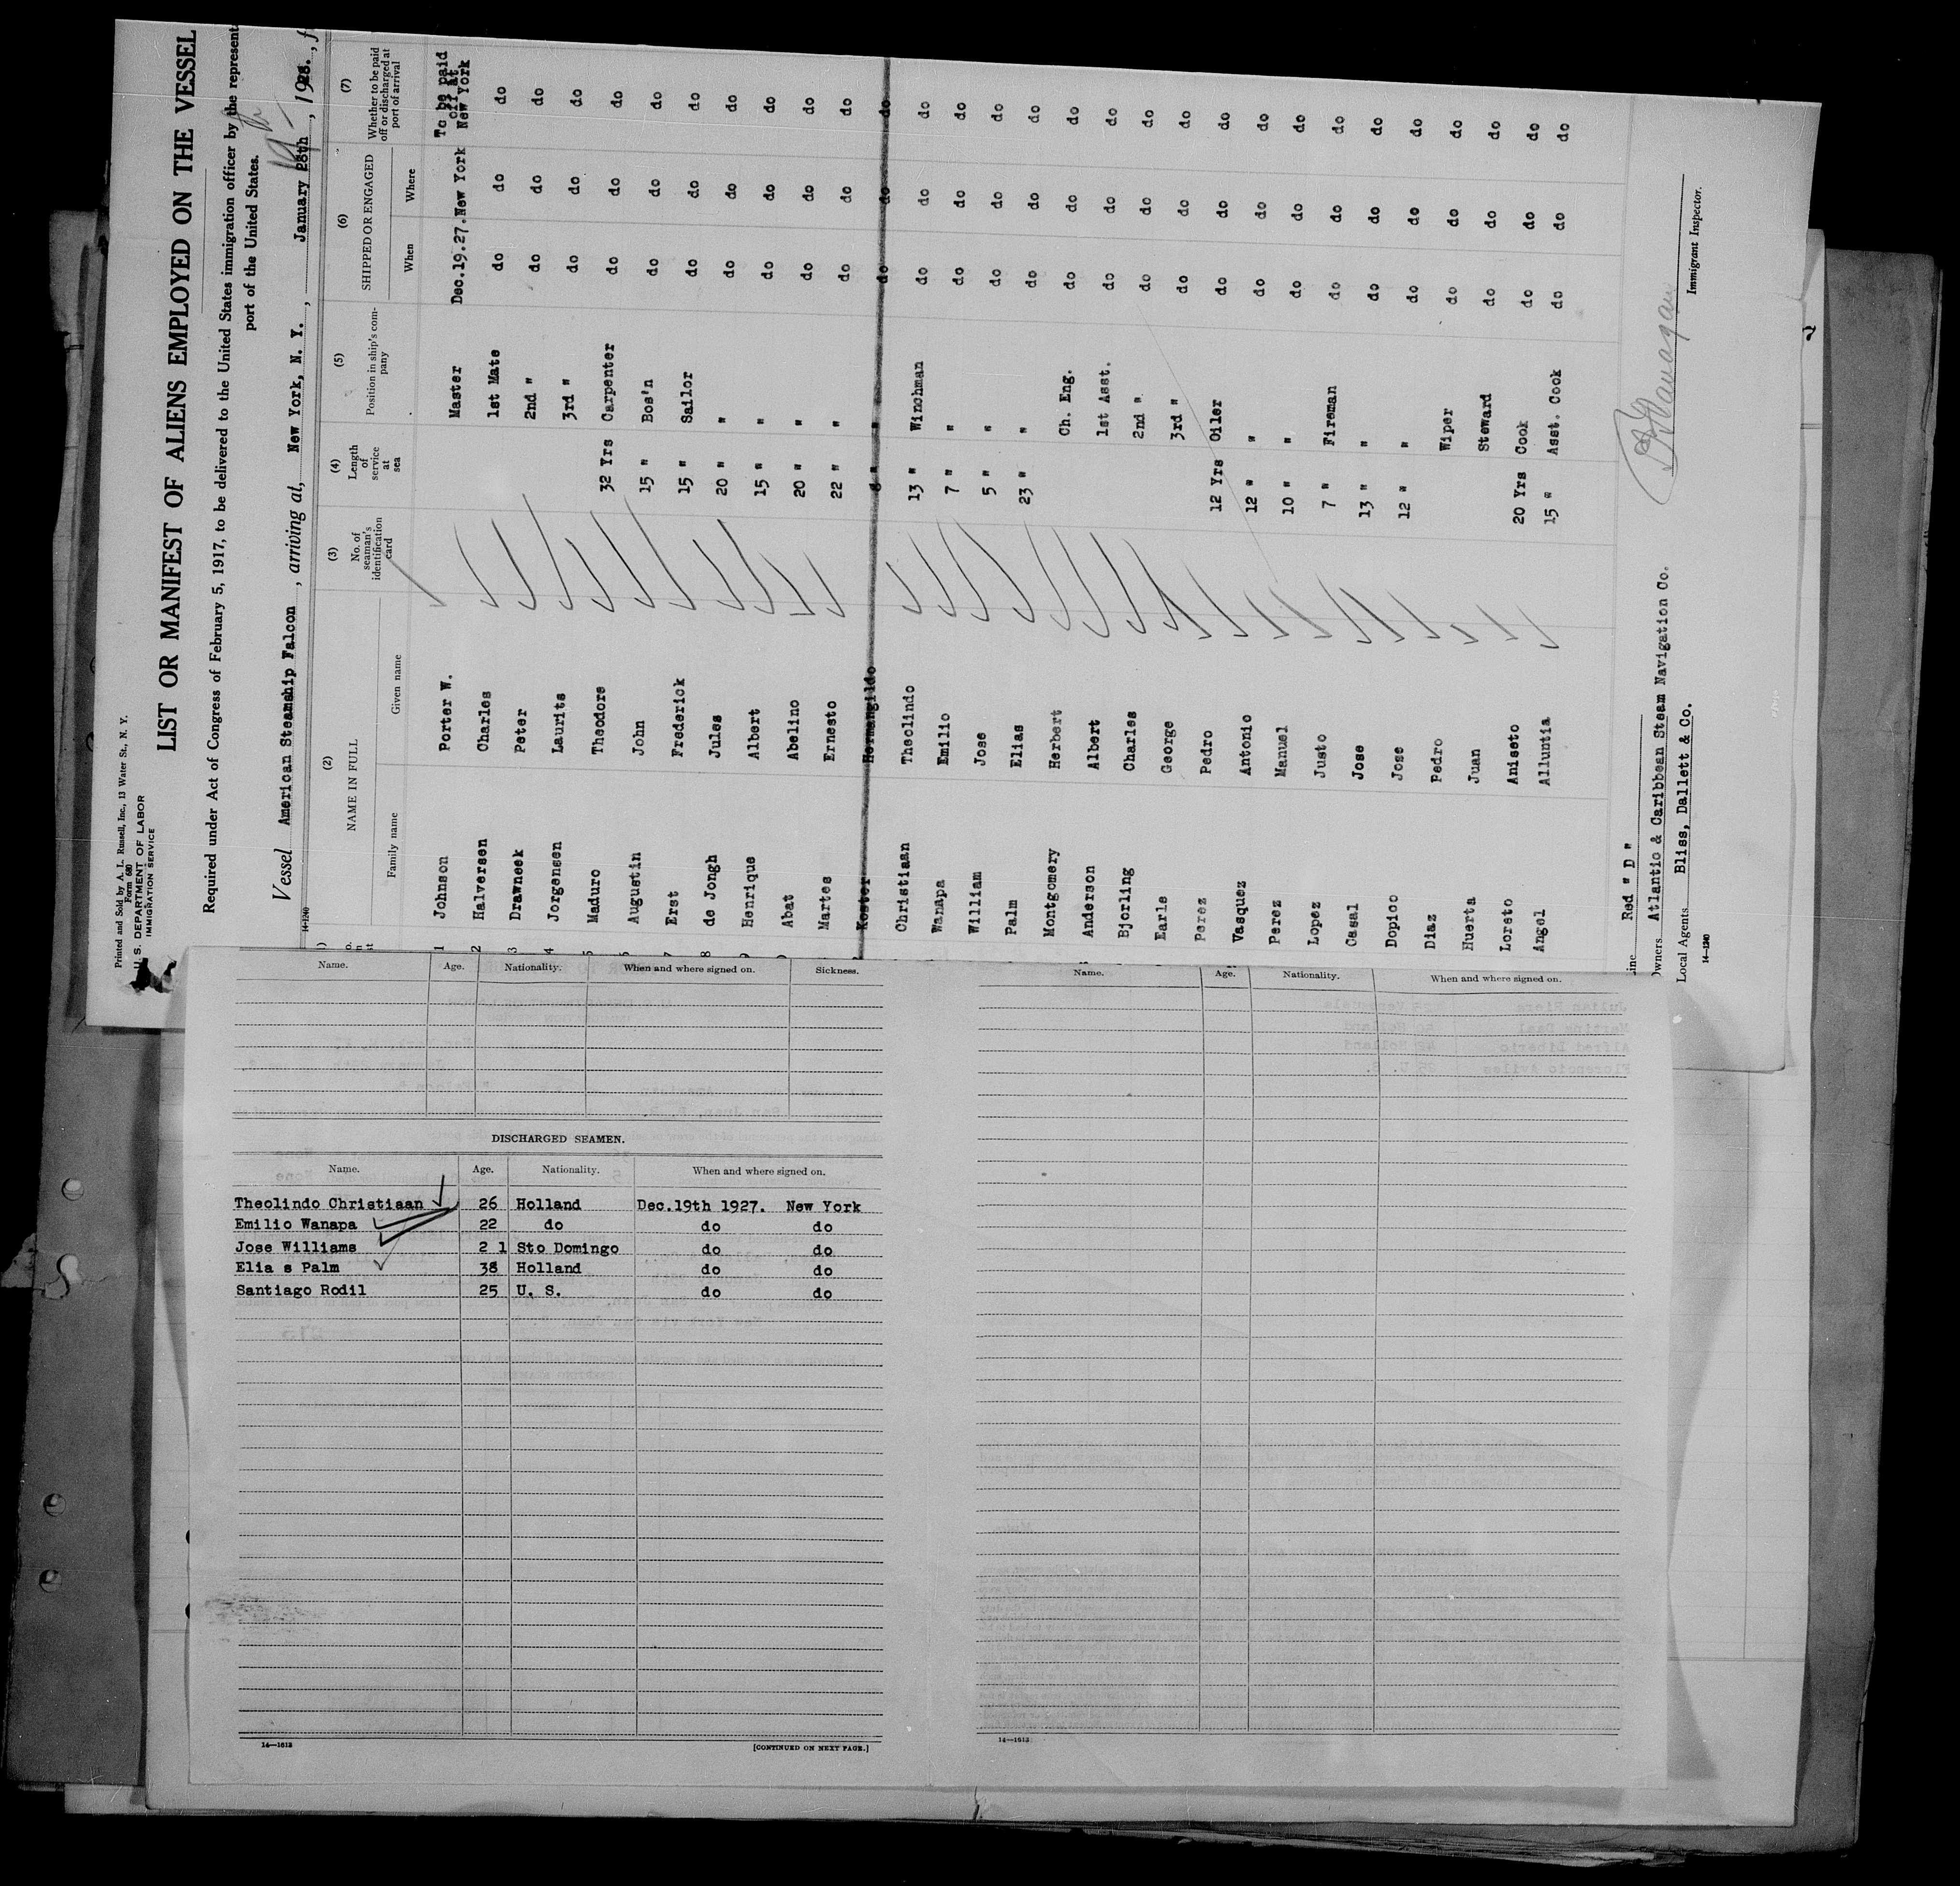 Printed and Sold by A. L. Russell, Inc., 13 Water St., N. Y.
Form 680
U. S. DEPARTMENT OF LABOR
IMMIGRATION SERVICE
LIST OR MANIFEST OF ALIENS EMPLOYED ON THE VESSEL
Required under Act of Congress of February 5, 1917, to be delivered to the United States immigration officer by the represent
port of the United States.
Vessel American Steamship Falcon , arriving at, New York, N. Y. , January 28th , 1928. , f
19th
14-1240
(2) (3) (4) (5) (6) (7)
NAME IN FULL No. of seaman's identification card Length of service at sea Position in ship's company SHIPPED OR ENGAGED Whether to be paid off or discharged at port of arrival
Family name Given name When Where
1 Johnson Porter W. Master Dec.19.27. New York To be paid off at New York
2 Halversen Charles 1st Mate do do do
3 Drawneek Peter 2nd " do do do
4 Jorgensen Laurits 3rd " do do do
5 Maduro Theodore 32 Yrs Carpenter do do do
6 Augustin John 15 " Bos'n do do do
7 Erst Frederick 15 " Sailor do do do
8 de Jongh Jules 20 " " do do do
9 Henrique Albert 15 " " do do do
Abat Abelino 20 " " do do do
Martes Ernesto 22 " " do do do
Koster Hermangildo " " do do do
Christiaan Theolindo 13 " Winchman do do do
Wanapa Emilio 7 " " do do do
William Jose 5 " " do do do
Palm Elias 23 " " do do do
Montgomery Herbert Ch. Eng. do do do
Anderson Albert 1st Asst. do do do
Bjorling Charles 2nd " do do do
Earle George 3rd " do do do
Perez Pedro 12 Yrs Oiler do do do
Vasquez Antonio 12 " " do do do
Perez Manuel 10 " " do do do
Lopez Justo 7 " Fireman do do do
Casal Jose 13 " " do do do
Dopico Jose 12 " " do do do
Diaz Pedro Wiper do do do
Huerta Juan Steward do do do
Loreto Aniseto 20 Yrs Cook do do do
Angel Alluntia 15 " Asst. Cook do do do
Line Red " D "
Owners Atlantic & Caribbean Steam Navigation Co.
Local Agents Bliss, Dallett & Co.
Immigrant Inspector.
14-1240
Name. Age. Nationality. When and where signed on. Sickness.
DISCHARGED SEAMEN.
Name. Age. Nationality. When and where signed on.
Theolindo Christiaan 26 Holland Dec.19th 1927. New York
Emilio Wanapa 22 do do do
Jose Williams 2 1 Sto Domingo do do
Elia s Palm 38 Holland do do
Santiago Rodil 25 U. S. do do
14-1613
[CONTINUED ON NEXT PAGE.]
Name. Age. Nationality. When and where signed on.
14-1613